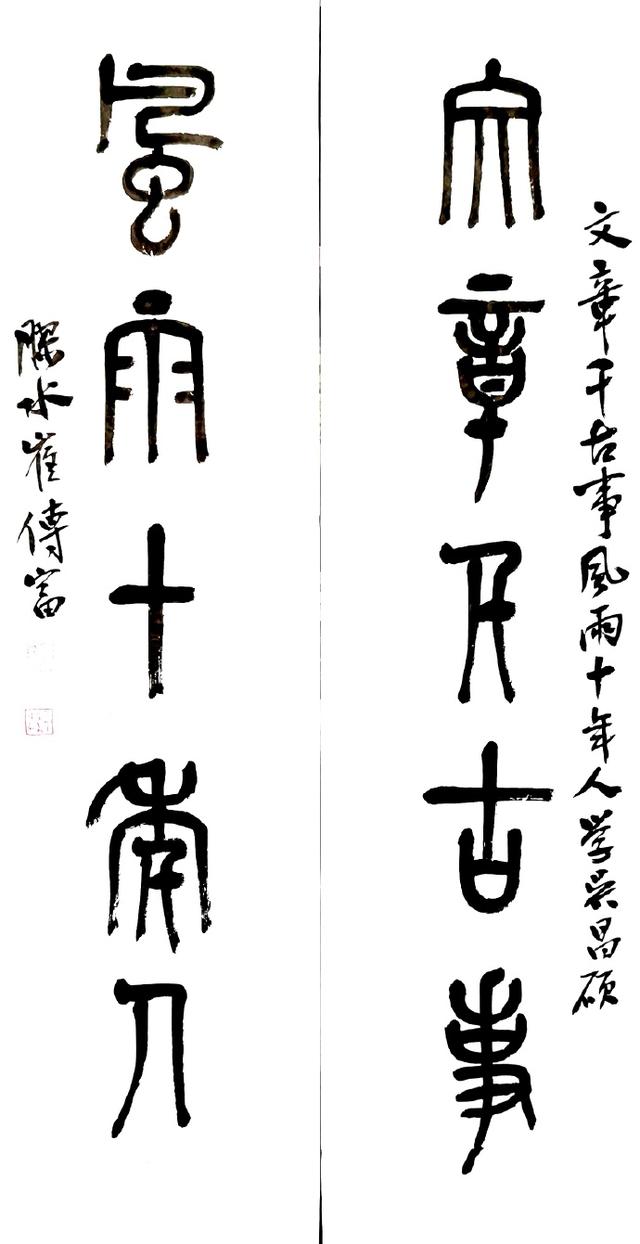 文章千古事風雨十年人学吴昌碩
文章千古事
風雨十年人
膠水崔傳富